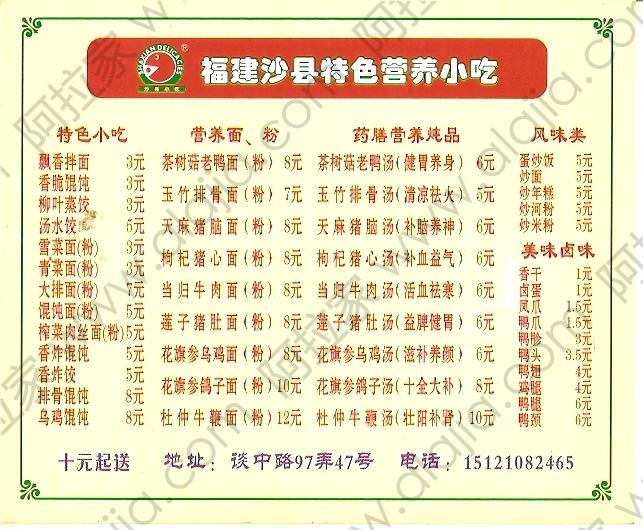 SHAXIAN DELICACIES
沙县小吃
®
福建沙县特色营养小吃
特色小吃
飘香拌面 3元
香脆馄饨 3元
柳叶蒸饺 3元
汤水饺 5元
雪菜面(粉) 3元
青菜面(粉) 3元
大排面(粉) 7元
馄饨面(粉) 5元
榨菜肉丝面(粉) 5元
香炸馄饨 5元
香炸饺 5元
排骨馄饨 8元
乌鸡馄饨 8元
营养面、粉
茶树菇老鸭面(粉) 8元
玉竹排骨面(粉) 7元
天麻猪脑面(粉) 8元
枸杞猪心面(粉) 8元
当归牛肉面(粉) 8元
莲子猪肚面(粉) 8元
花旗参乌鸡面(粉) 8元
花旗参鸽子面(粉) 10元
杜仲牛鞭面(粉) 12元
药膳营养炖品
茶树菇老鸭汤(健胃养身) 6元
玉竹排骨汤(清凉祛火) 5元
天麻猪脑汤(补脑养神) 6元
枸杞猪心汤(补血益气) 6元
当归牛肉汤(活血祛寒) 6元
莲子猪肚汤(益脾健胃) 6元
花旗参乌鸡汤(滋补养颜) 6元
花旗参鸽子汤(十全大补) 8元
杜仲牛鞭汤(壮阳补肾) 10元
风味类
蛋炒饭 5元
炒面 5元
炒年糕 5元
炒河粉 5元
炒米粉 5元
美味卤味
香干 1元
卤蛋 1元
凤爪 1.5元
鸭爪 1.5元
鸭胗 3元
鸭头 3.5元
鸭翅 4元
鸡腿 4元
鸭腿 6元
鸭颈 6元
十元起送 地址：谈中路97弄47号 电话：15121082465
阿拉家 www.alajia.com